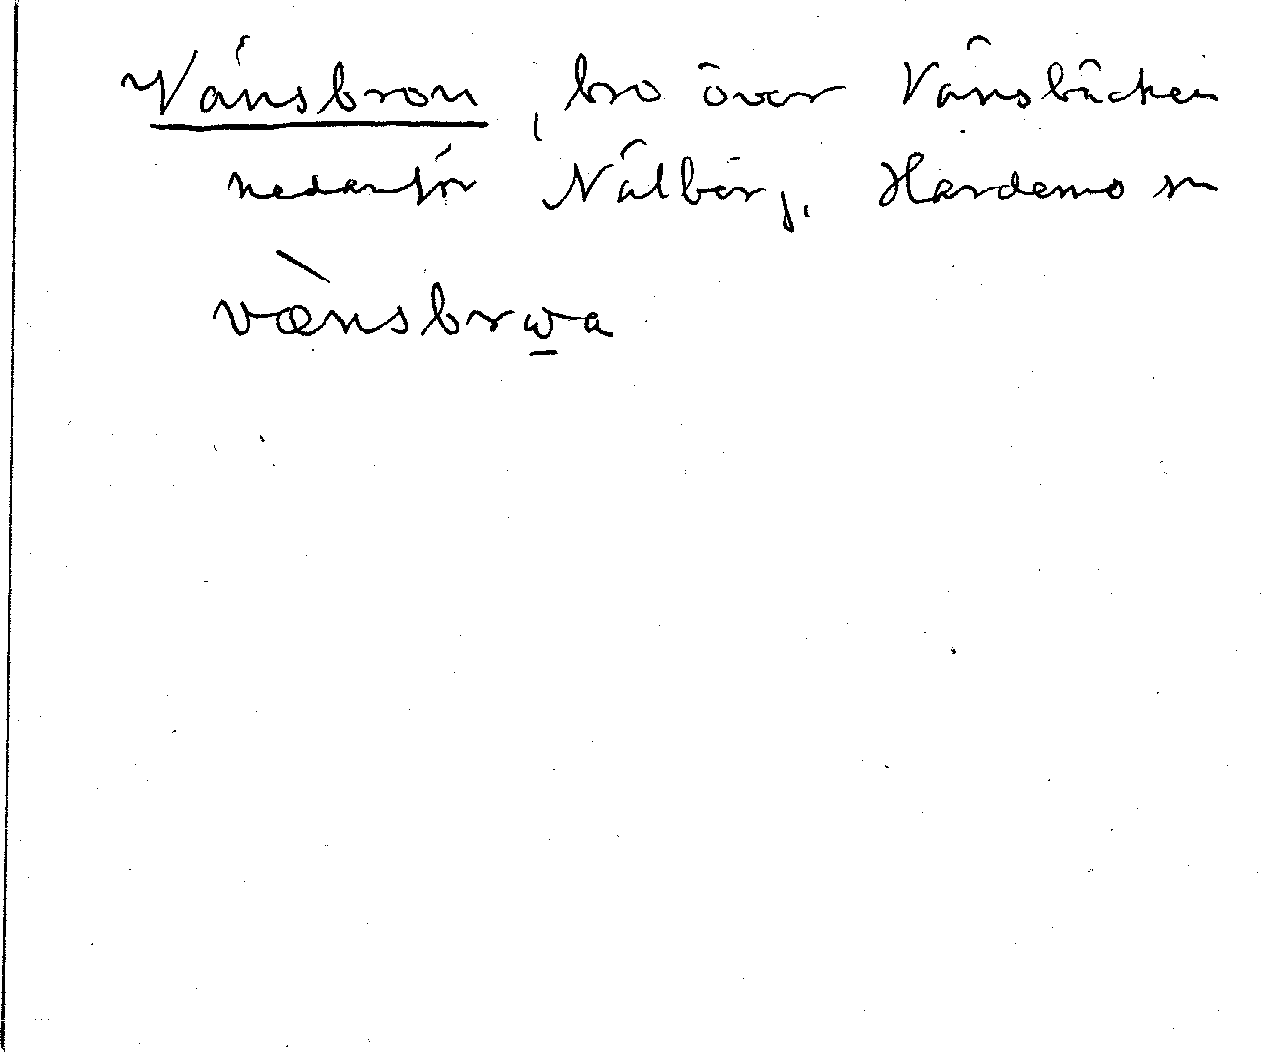 Vänsbron, bro över Vänsbäcken
nedanför Nälberg, Hardemo sn
vænsbrωa